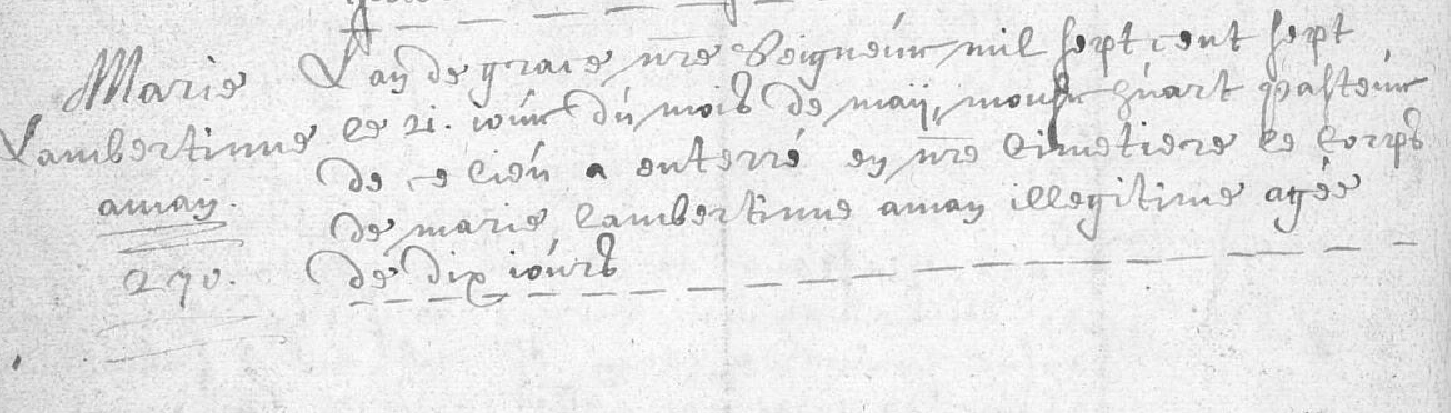 Marie
Lambertinne
amay.
270.
L'an de grace nre Seigneur mil sept cent sept
le 21. iour du mois de maij, monsr huart pasteur
de ce lieu a enterré en nre Cimetiere le Corps
de marie, lambertinne amay illegitime agée
de dix iours